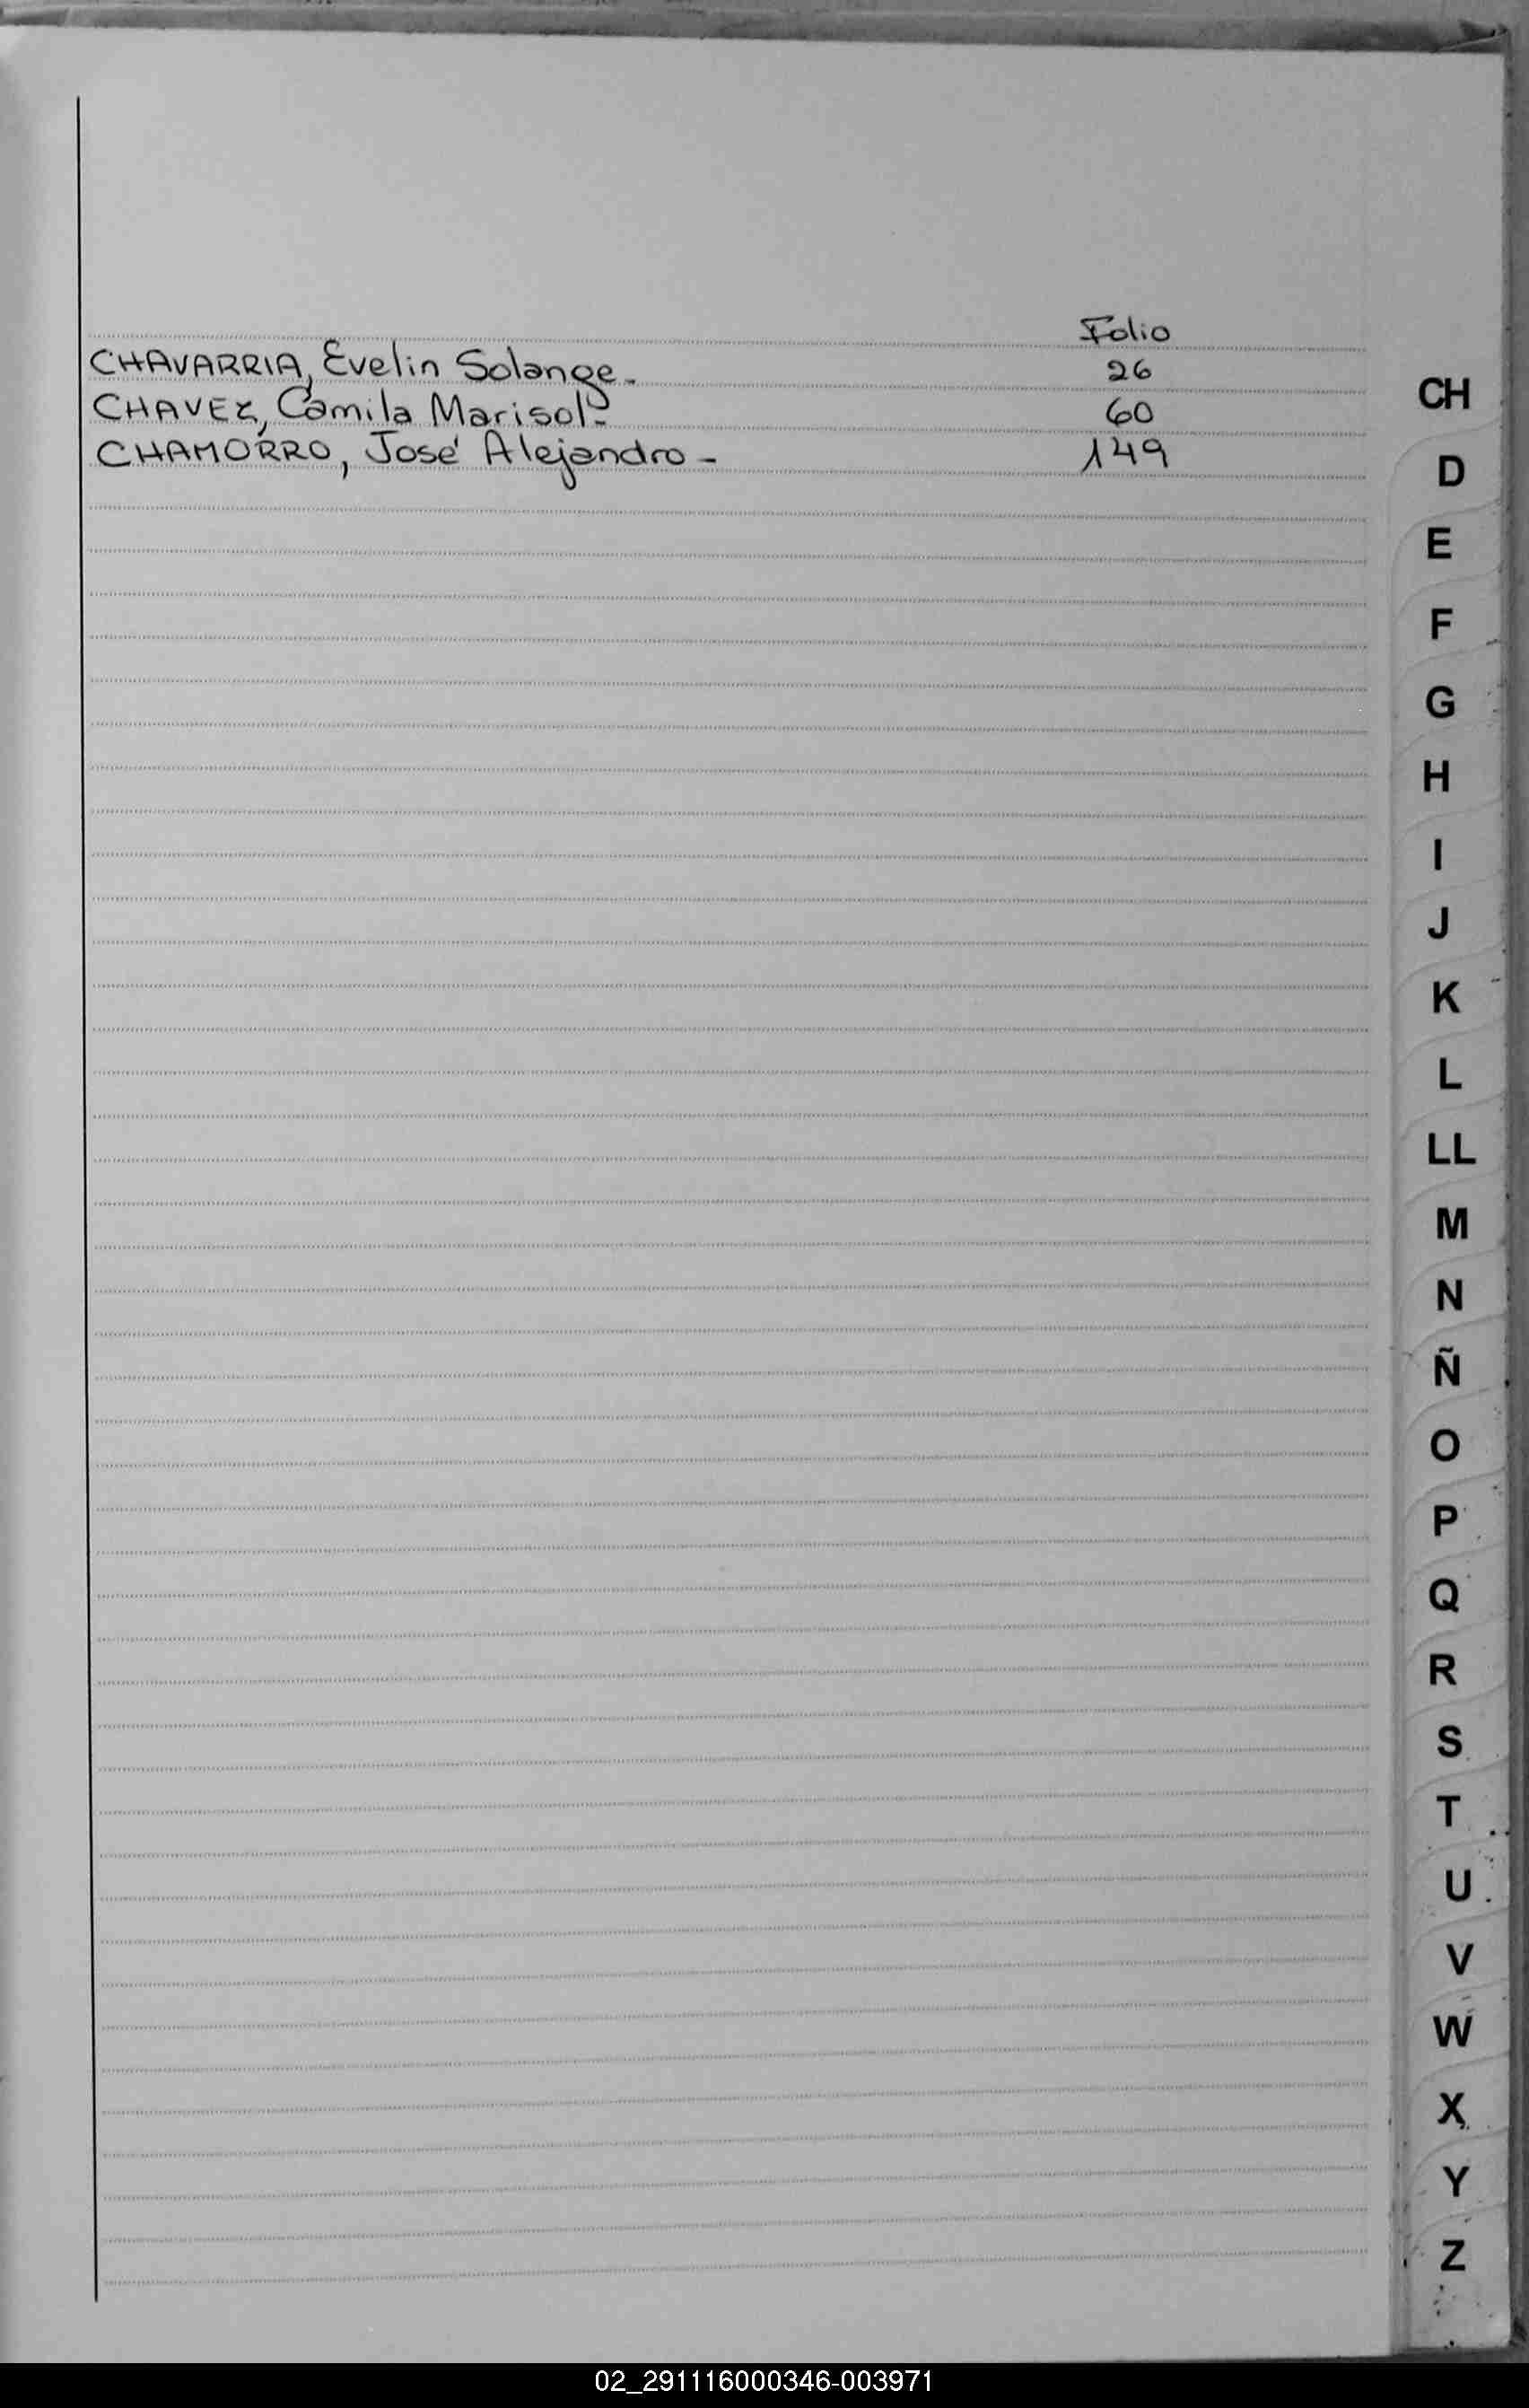 Folio
CHAVARRIA, Evelin Solange. 26
CHAVEZ, Camila Marisol- 60
CHAMORRO, José Alejandro - 149
CH
D
E
F
G
H
I
J
K
L
LL
M
N
Ñ
O
P
Q
R
S
T
U
V
W
X
Y
Z
02_291116000346-003971